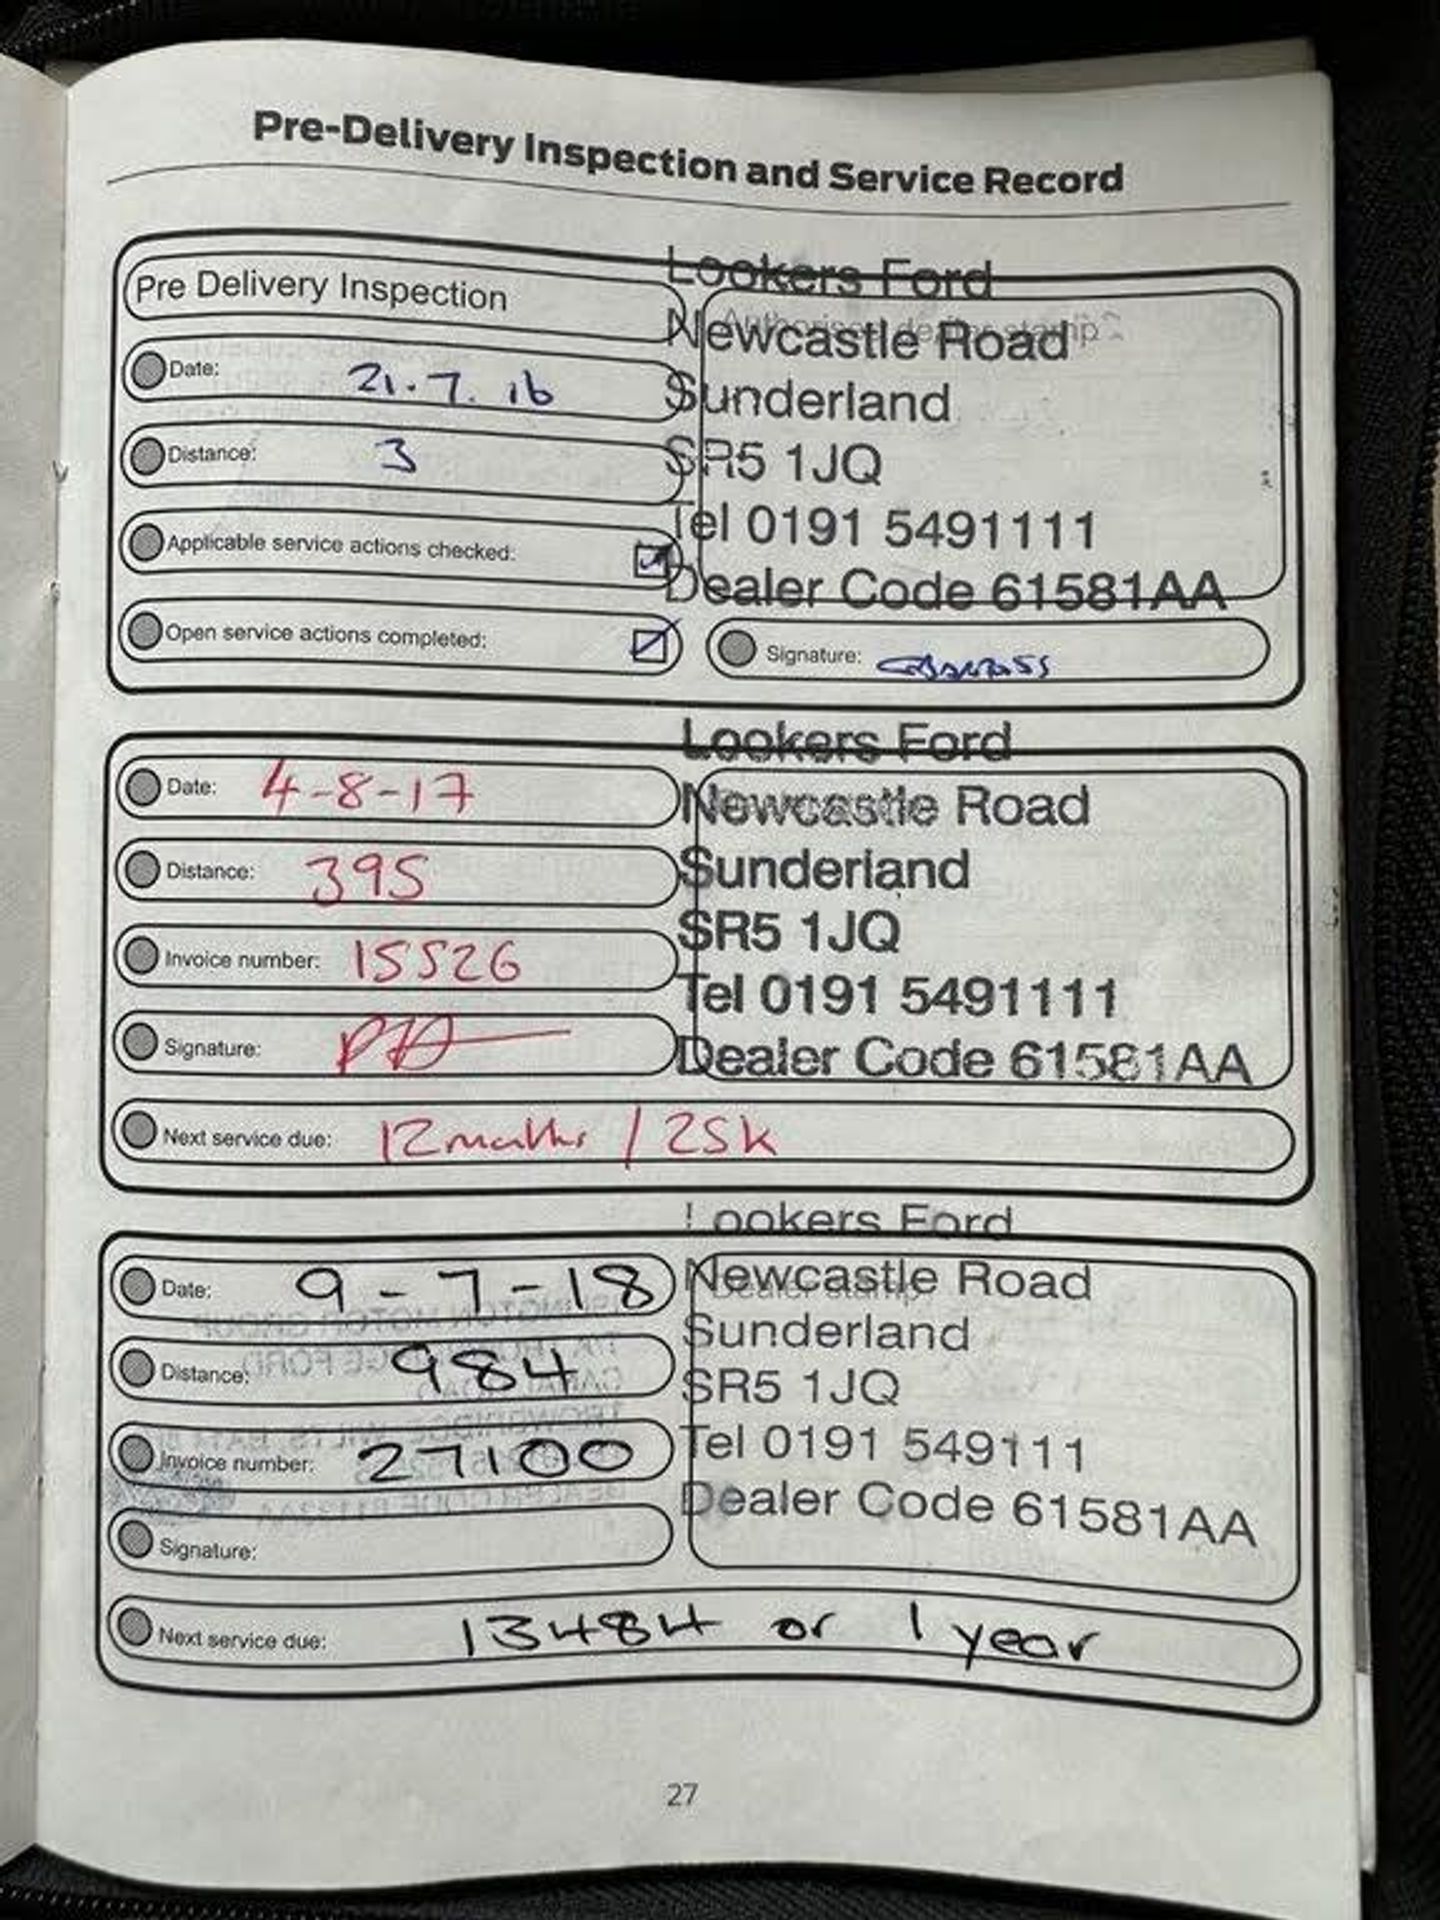 Pre-Delivery Inspection and Service Record
Pre Delivery Inspection
Date: 21.7.16
Distance: 3
Applicable service actions checked:
Open service actions completed:
Lookers Ford
Newcastle Road
Sunderland
SR5 1JQ
Tel 0191 5491111
Dealer Code 61581AA
Signature:
Date: 4-8-17
Distance: 395
Invoice number: 15526
Signature:
Lookers Ford
Newcastle Road
Sunderland
SR5 1JQ
Tel 0191 5491111
Dealer Code 61581AA
Next service due: 12 months / 25k
Date: 9-7-18
Distance: 984
Invoice number: 27100
Signature:
Lookers Ford
Newcastle Road
Dealer stamp
Sunderland
SR5 1JQ
Tel 0191 549111
Dealer Code 61581AA
Next service due: 13484 or 1 year
27